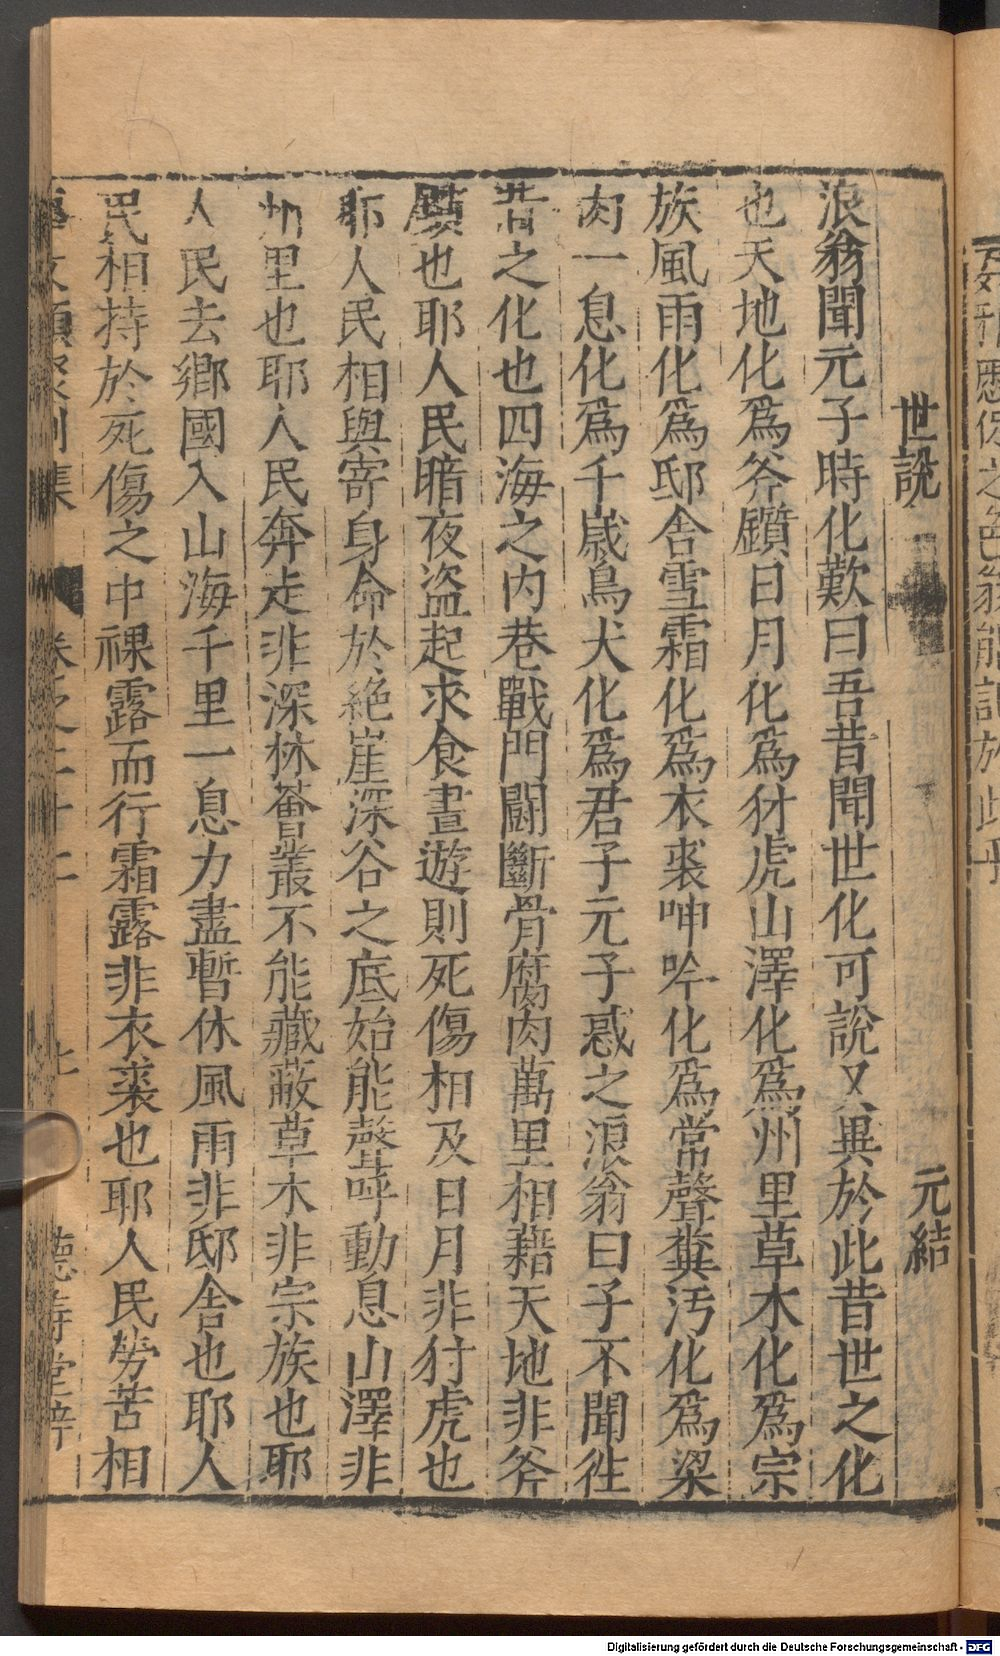 世說　元結
浪翁聞元子時化歎曰吾昔聞世化可說又異於此昔世之化
也天地化爲斧鑕日月化爲豺虎山澤化爲州里草木化爲宗
族風雨化爲邸舍雪霜化爲衣裘呻吟化爲常聲糞汚化爲粱
肉一息化爲千歲烏犬化爲君子元子惑之浪翁曰子不聞徃
昔之化也四海之內巷戰門鬪斷骨腐肉萬里相藉天地非斧
鑕也耶人民暗夜盗起求食晝遊則死傷相及日月非豺虎也
耶人民相與寄身命於絶崖深谷之底始能聲呼動息山澤非
州里也耶人民奔走非深林薈叢不能藏蔽草木非宗族也耶
人民去鄉國入山海千里一息力盡暫休風雨非邸舍也耶人
民相持於死傷之中裸露而行霜露非衣裘也耶人民勞苦相
集　卷之二十二　德壽堂梓